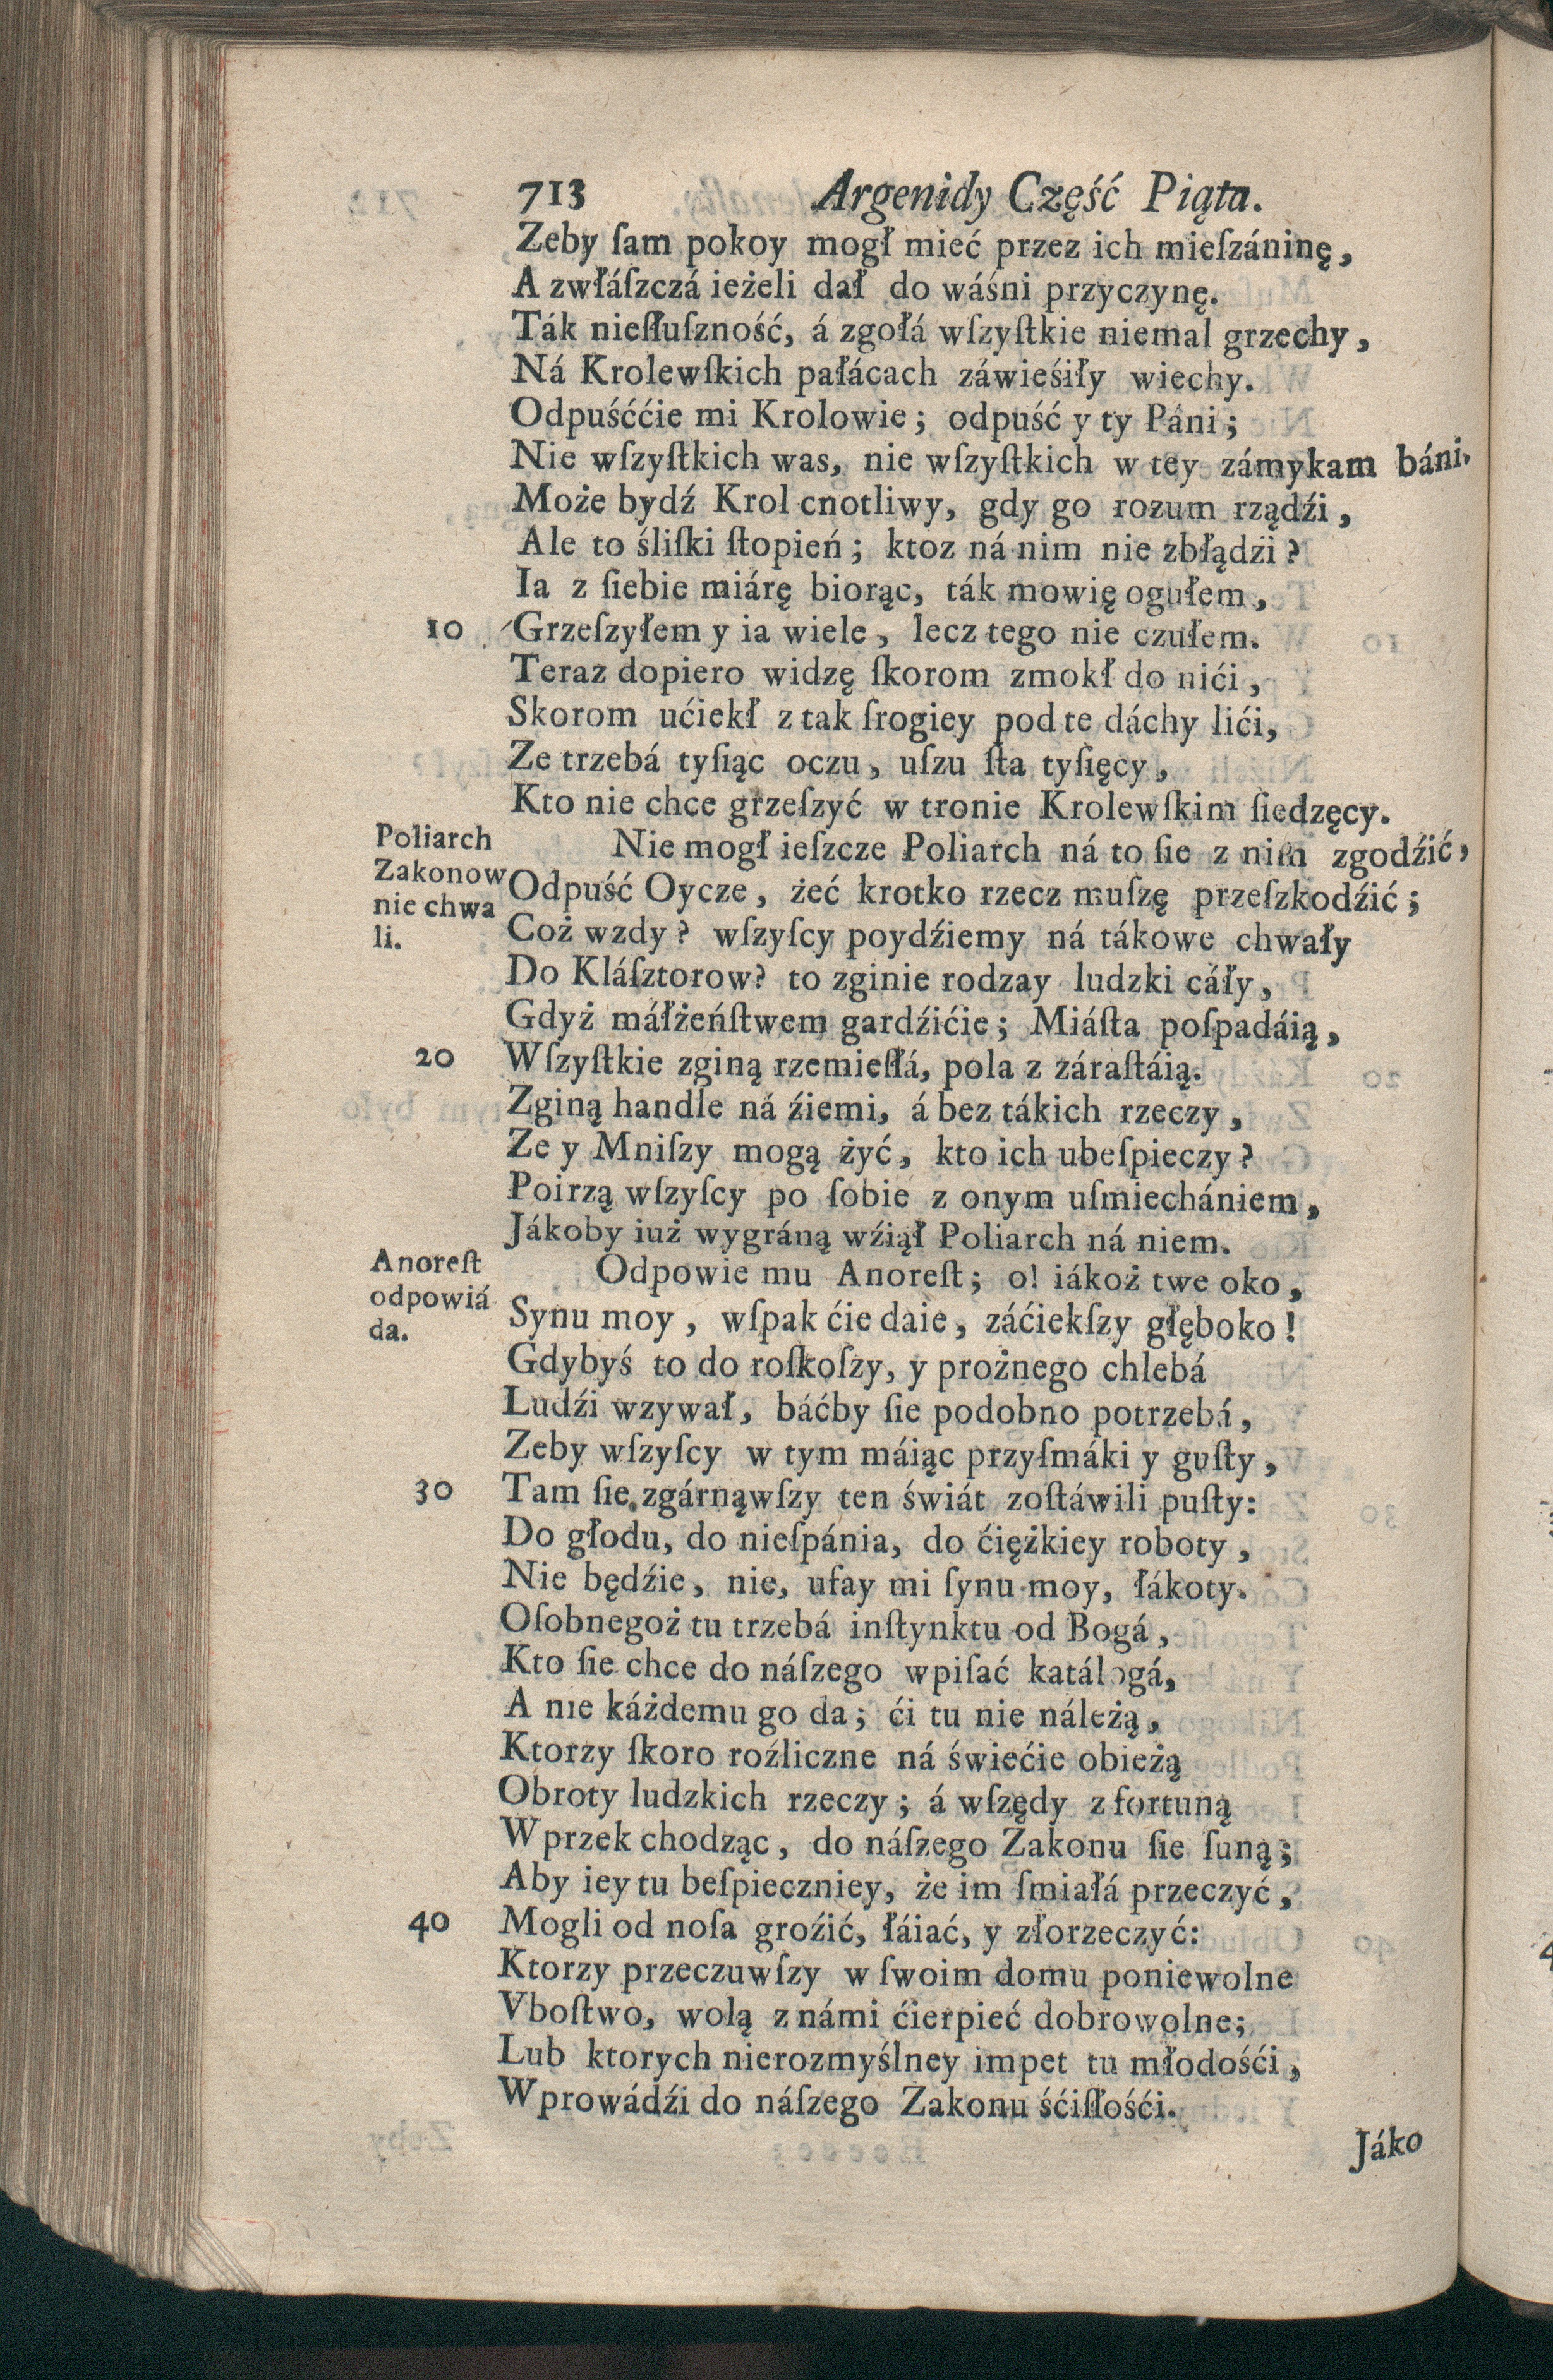 713 Argenidy Część Piąta.
Zeby ſam pokoy mogł mieć przez ich mieſzáninę,
A zwłáſzczá ieżeli dał do wáśni przyczynę.
Ták nieſłuſzność, á zgołá wſzyſtkie niemal grzechy,
Ná Krolewſkich pałácach záwieśiły wiechy.
Odpuśććie mi Krolowie; odpuść y ty Páni;
Nie wſzyſtkich was, nie wſzyſtkich w tey zámykam báni.
Może bydź Krol cnotliwy, gdy go rozum rządźi,
Ale to śliſki ſtopień; ktoz ná nim nie zbłądzi?
Ia z ſiebie miárę biorąc, ták mowię ogułem,
10 Grzeſzyłem y ia wiele, lecz tego nie czułem.
Teraz dopiero widzę ſkorom zmokł do nići,
Skorom ućiekł z tak ſrogiey pod te dáchy lići,
Ze trzebá tyſiąc oczu, uſzu ſta tyſięcy,
Kto nie chce grzeſzyć w tronie Krolewſkim ſiedzęcy.
Poliarch
Zakonow
nie chwa
li.
Nie mogł ieſzcze Poliarch ná to ſie z nim zgodźić,
Odpuść Oycze, żeć krotko rzecz muſzę przeſzkodźić;
Coż wzdy? wſzyſcy poydźiemy ná tákowe chwały
Do Kláſztorow? to zginie rodzay ludzki cáły,
Gdyż máłżeńſtwem gardźićie; Miáſta poſpadáią,
20 Wſzyſtkie zginą rzemieſłá, pola z záraſtáią.
Zginą handle ná źiemi, á bez tákich rzeczy,
Ze y Mniſzy mogą żyć, kto ich ubeſpieczy?
Poirzą wſzyſcy po ſobie z onym uſmiechániem,
Jákoby iuż wygráną wźiął Poliarch ná niem.
Anoreſt
odpowiá
da.
Odpowie mu Anoreſt; o! iákoż twe oko,
Synu moy, wſpak ćie daie, záćiekſzy głęboko!
Gdybyś to do roſkoſzy, y prożnego chlebá
Ludźi wzywał, báćby ſie podobno potrzebá,
Zeby wſzyſcy w tym máiąc przyſmáki y guſty,
30 Tam ſie zgárnąwſzy ten świát zoſtáwili puſty:
Do głodu, do nieſpánia, do ćiężkiey roboty,
Nie będźie, nie, ufay mi ſynu moy, łákoty.
Oſobnegoż tu trzebá inſtynktu od Bogá,
Kto ſie chce do náſzego wpiſać katálogá,
A nie káżdemu go da; ći tu nie náleżą,
Ktorzy ſkoro roźliczne ná świećie obieżą
Obroty ludzkich rzeczy; á wſzędy z fortuną
Wprzek chodząc, do náſzego Zakonu ſie ſuną;
Aby iey tu beſpieczniey, że im ſmiałá przeczyć,
40 Mogli od noſa groźić, łáiać, y złorzeczyć:
Ktorzy przeczuwſzy w ſwoim domu poniewolne
Vboſtwo, wolą z námi ćierpieć dobrowolne;
Lub ktorych nierozmyślney impet tu młodośći,
Wprowádźi do náſzego Zakonu śćiſłośći.
Jáko